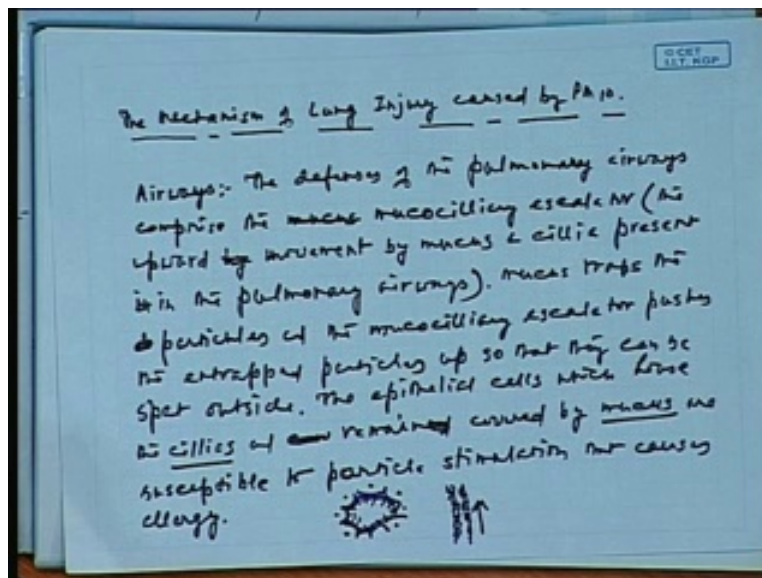 © CET
I.I.T. KGP
The Mechanism of Lung Injury caused by PM 10.
Airways:- The defenses of the pulmonary airways
comprise the mucocilliary escalator (the
upward movement by mucus & cillia present
in the pulmonary airways). Mucus traps the
particles and the mucocilliary escalator pushes
the entrapped particles up so that they can be
spat outside. The epithelial cells which house
the cillies and remained covered by mucus are
susceptible to particle stimulation that causes
allergy.